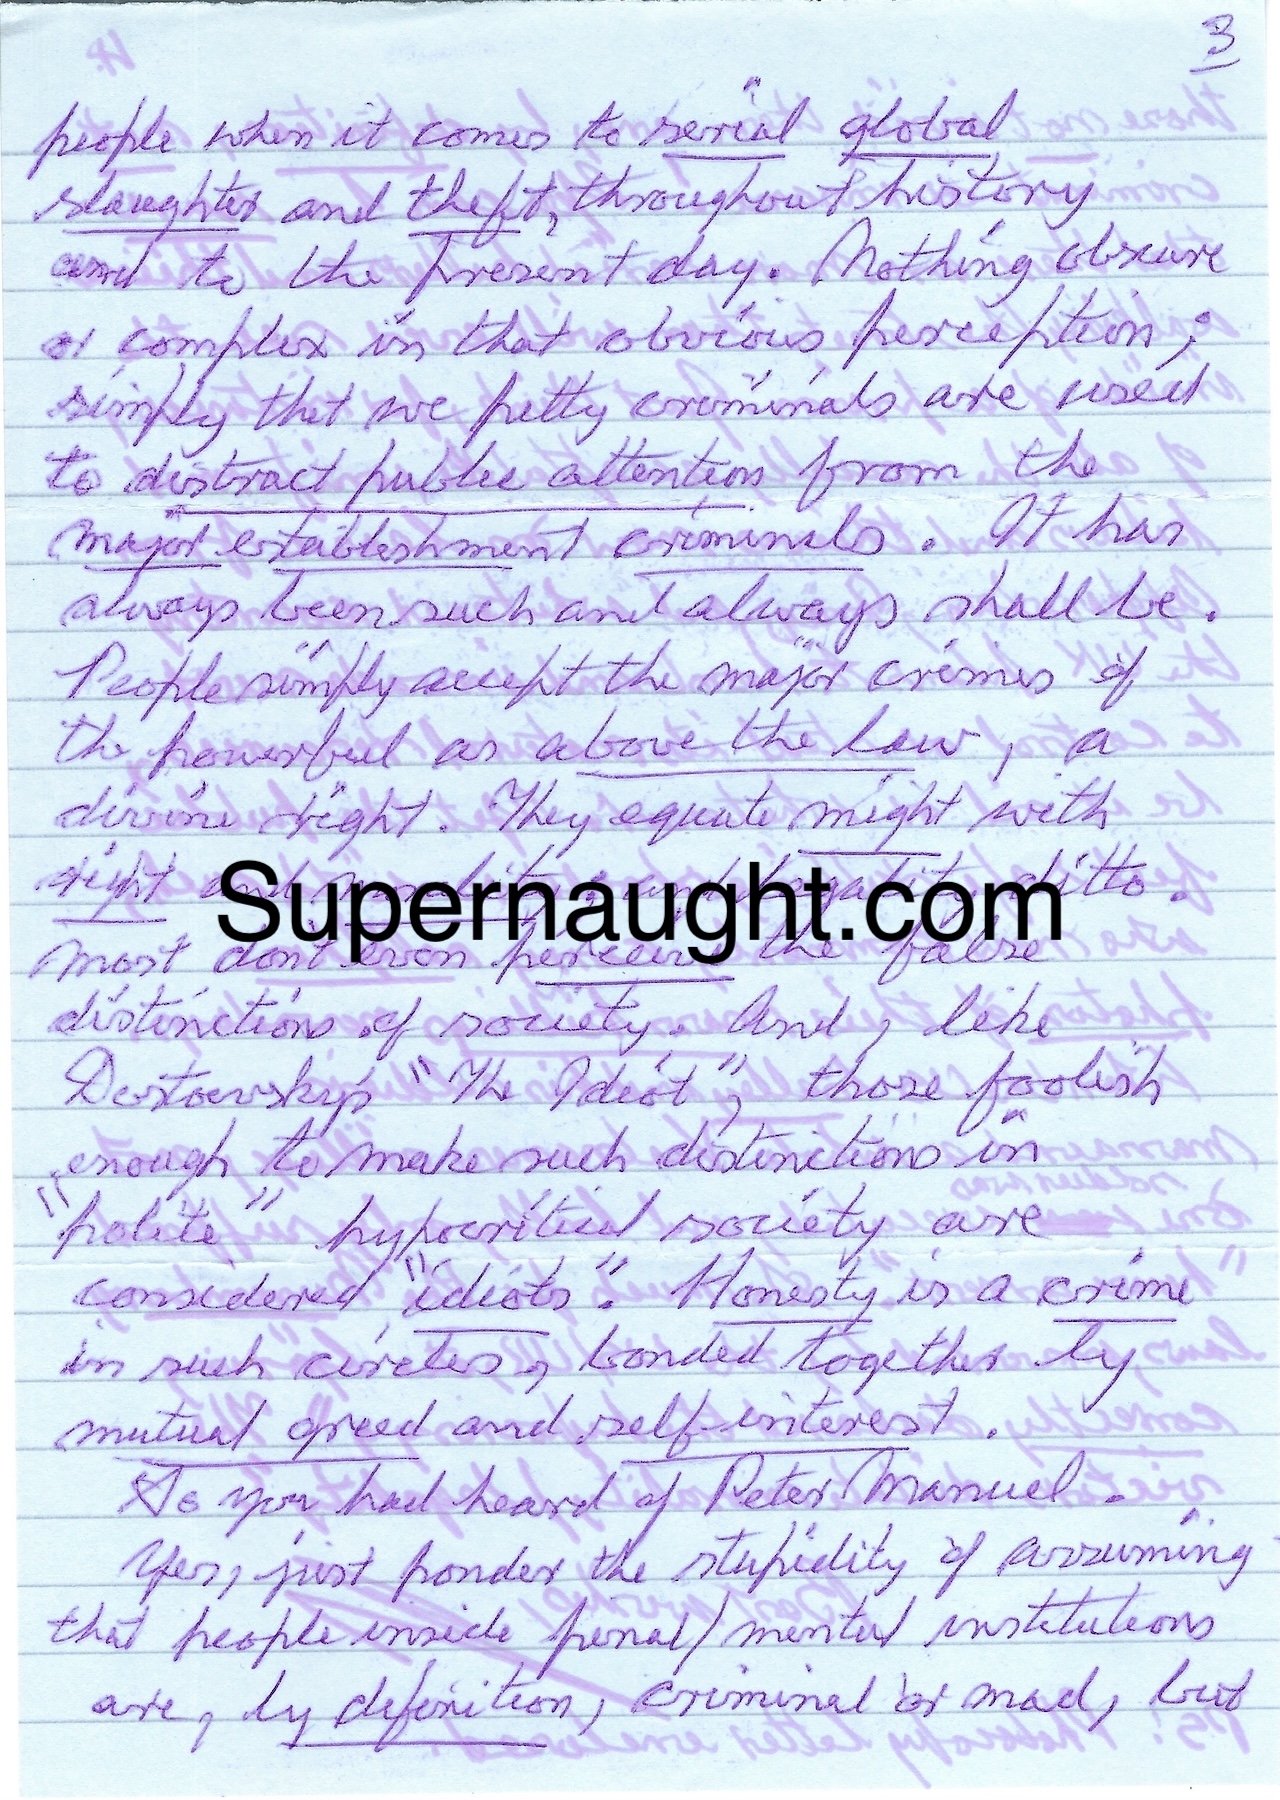 3
people when it comes to serial global
slaughter and theft, throughout history
and to the present day. Nothing obscure
or complex in that obvious perception;
simply that we petty criminals are used
to distract public attention from the
major establishment criminals. It has
always been such and always shall be.
People simply accept the major crimes of
the powerful as above the law, a
divine right. They equate might with
right and morality, and legality ditto.
Supernaught.com
Most dont even perceive the false
distinctions of society. And, like
Dostoevsky's "The Idiot", those foolish
enough to make such distinctions in
"polite" hypocritical society are
considered "idiots". Honesty is a crime
in such circles, bonded together by
mutual greed and self-interest.
So you had heard of Peter Manuel.
Yes, just ponder the stupidity of assuming
that people inside penal/mental institutions
are, by definition, criminal or mad, but